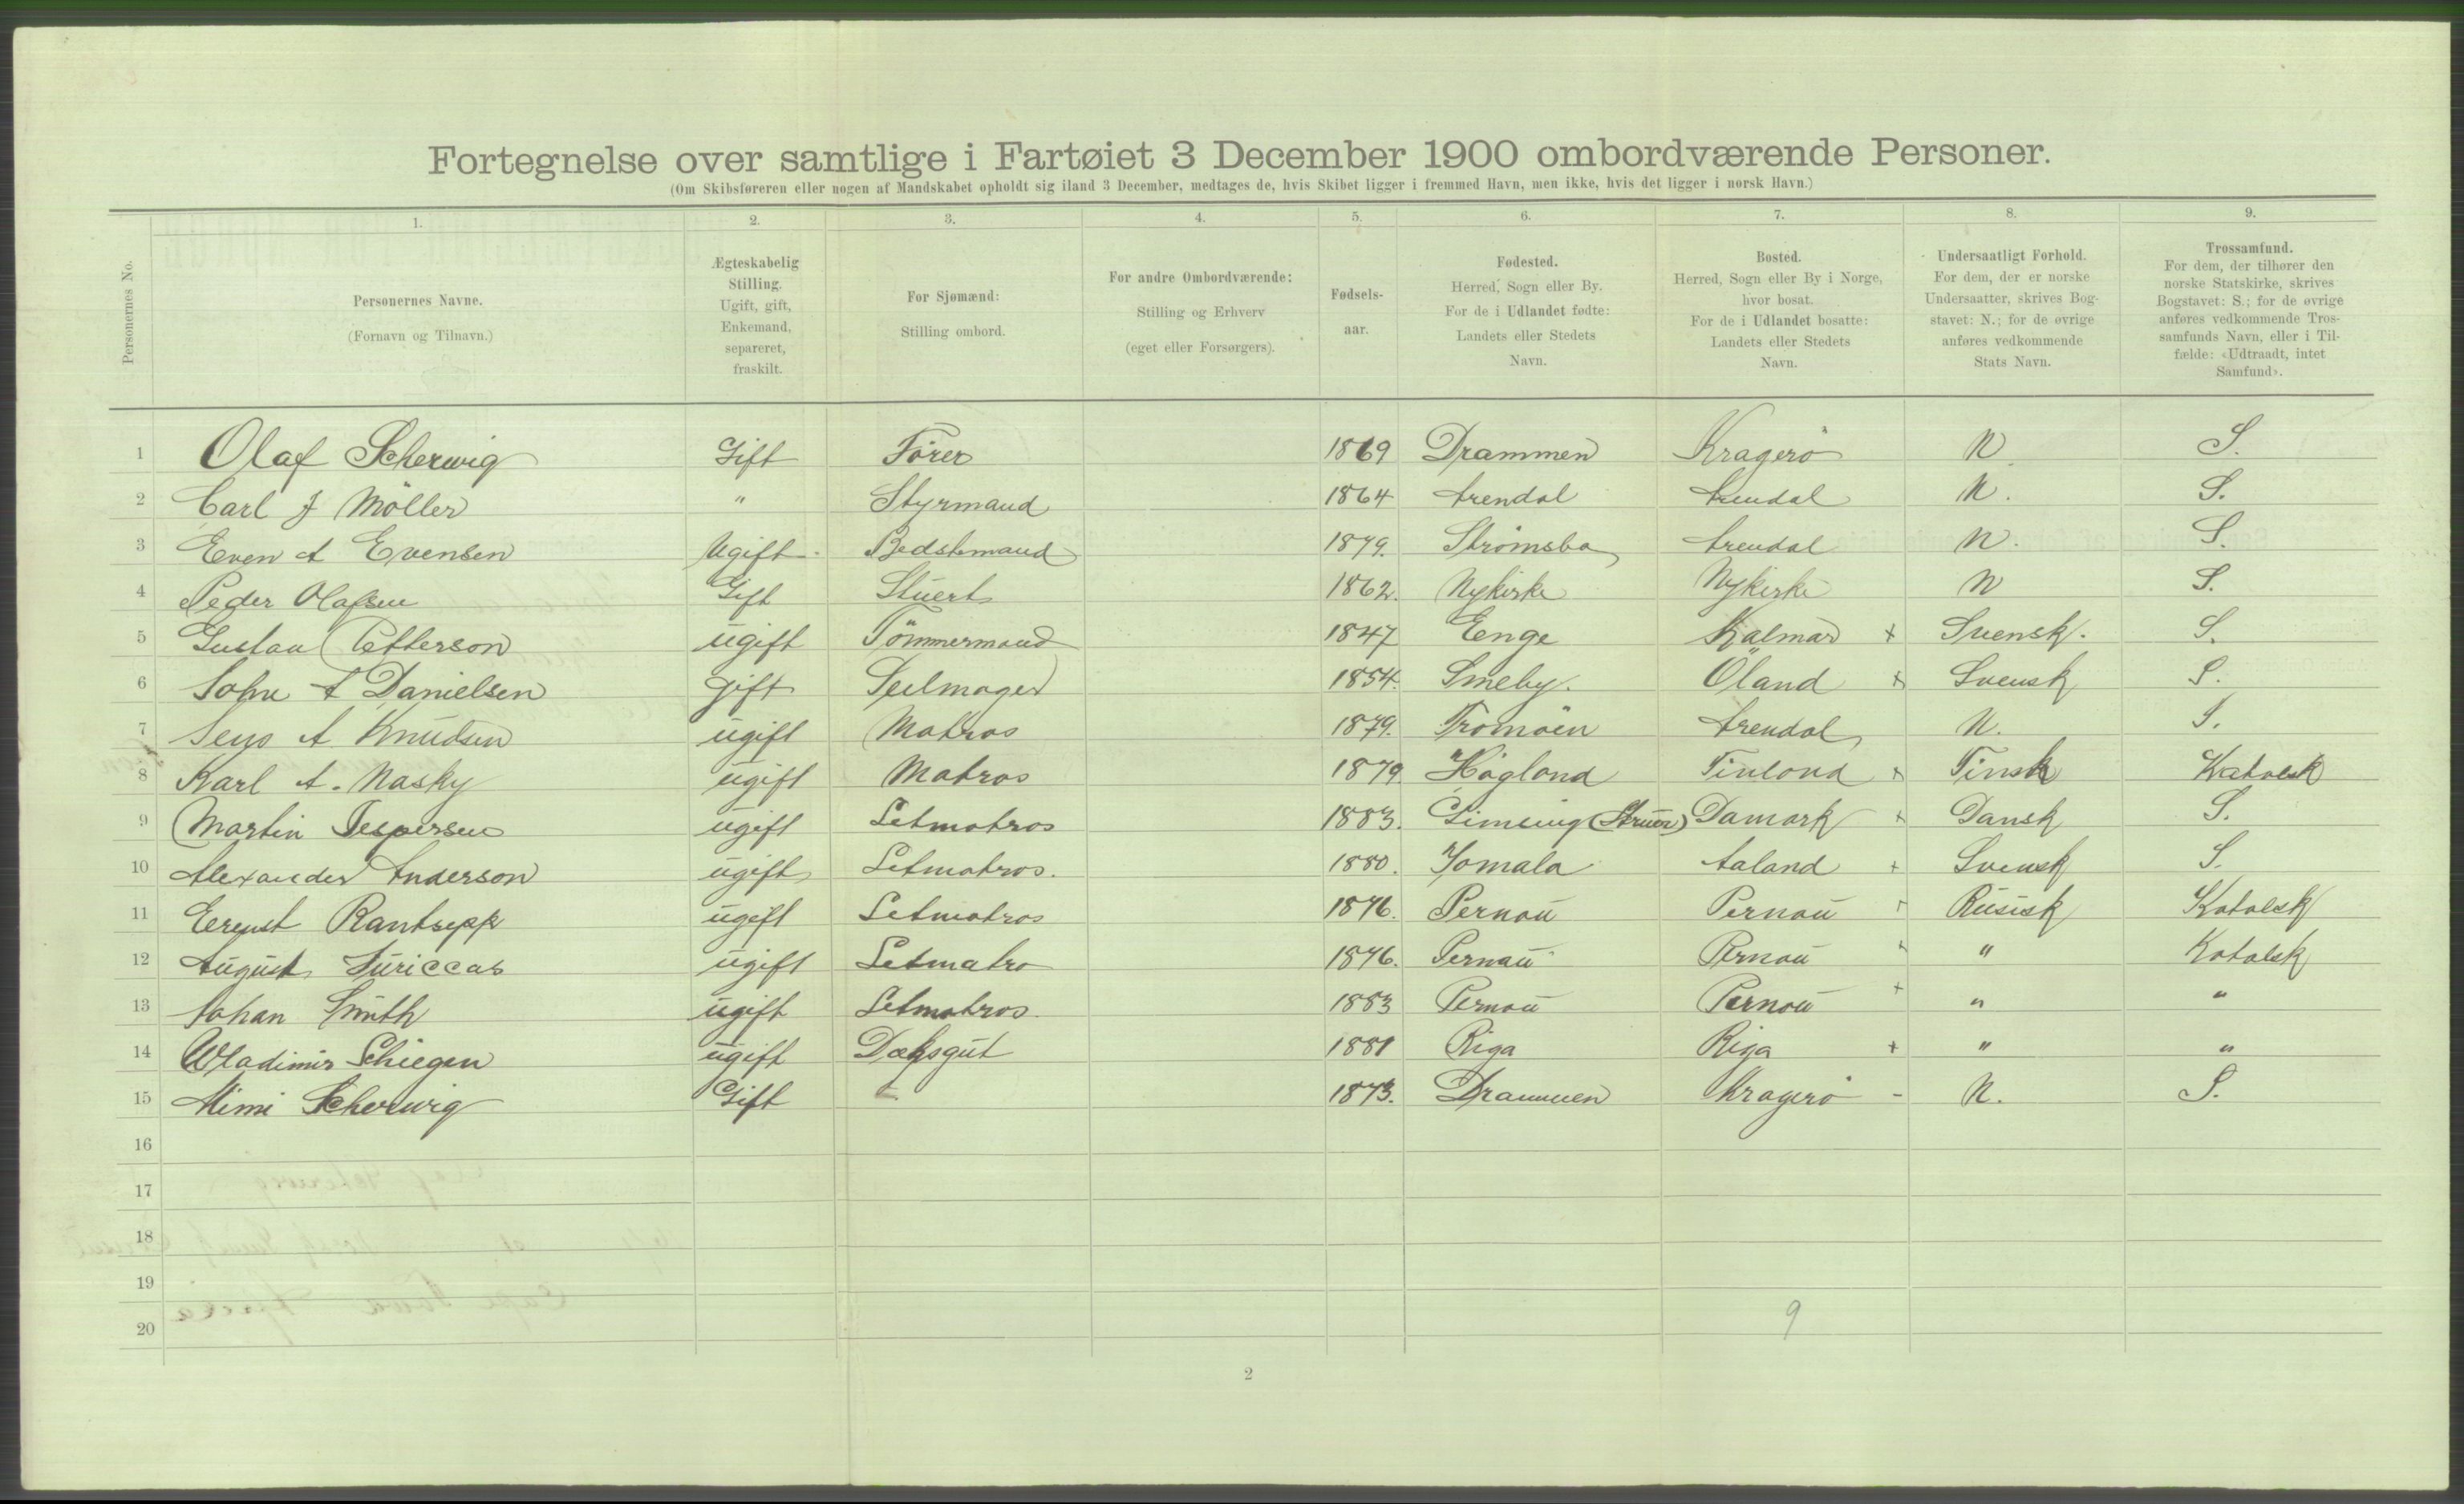 Fortegnelse over samtlige i Fartøiet 3 December 1900 ombordværende Personer.
(Om Skibsføreren eller nogen af Mandskabet opholdt sig iland 3 December, medtages de, hvis Skibet ligger i fremmed Havn, men ikke, hvis det ligger i norsk Havn.)
Personernes No.
1. Personernes Navne. (Fornavn og Tilnavn.)
2. Ægteskabelig Stilling. Ugift, gift, Enkemand, separeret, fraskilt.
3. For Sjømænd: Stilling ombord.
4. For andre Ombordværende: Stilling og Erhverv (eget eller Forsørgers).
5. Fødsels-aar.
6. Fødested. Herred, Sogn eller By. For de i Udlandet fødte: Landets eller Stedets Navn.
7. Bosted. Herred, Sogn eller By i Norge, hvor bosat. For de i Udlandet bosatte: Landets eller Stedets Navn.
8. Undersaatligt Forhold. For dem, der er norske Undersaatter, skrives Bogstavet: N.; for de øvrige anføres vedkommende Stats Navn.
9. Trossamfund. For dem, der tilhører den norske Statskirke, skrives Bogstavet: S.; for de øvrige anføres vedkommende Trossamfunds Navn, eller i Tilfælde: «Udtraadt, intet Samfund».
1 Olaf Scherwig Gift Förer 1869 Drammen Kragerö N S.
2 Carl J Möller " Styrmand 1864 Arendal Arendal N. S.
3 Even A Evensen Ugift Bedstemand 1879. Strömsbo Arendal N. S.
4 Peder Olafsen Gift Stuert 1862. Nykirke Nykirke N S.
5 Gustav Petterson ugift Tömmermand 1847 Enge Kalmar + Svensk. S.
6 John A Danielsen gift Seilmager 1854. Smeby. Öland + Svensk S.
7 Jens A Knudsen ugift Matros 1879. Tromöen Arendal N. S.
8 Karl A. Nasky ugift Matros 1879 Högland Finland + Finsk Katolsk
9 Martin Jespersen ugift Letmatros 1883. Gimsing (Struer) Damark + Dansk S.
10 Alexander Anderson ugift Letmatros. 1880. Jomala Aaland + Svensk S.
11 Ernst Rantsepp ugift Letmatros 1876. Pernau Pernau + Rusisk Katolsk
12 August ugift Letmatro 1876. Pernau Pernau + " Katolsk
13 Johan Smith ugift Letmatros 1883 Pernau Pernau + " "
14 Wladimir Schiegen ugift Dæksgut 1881 Riga Riga + " "
15 Mimi Scherwig Gift 1873. Drammen Kragerö - N. S.
16
17
18
19
20
9
2